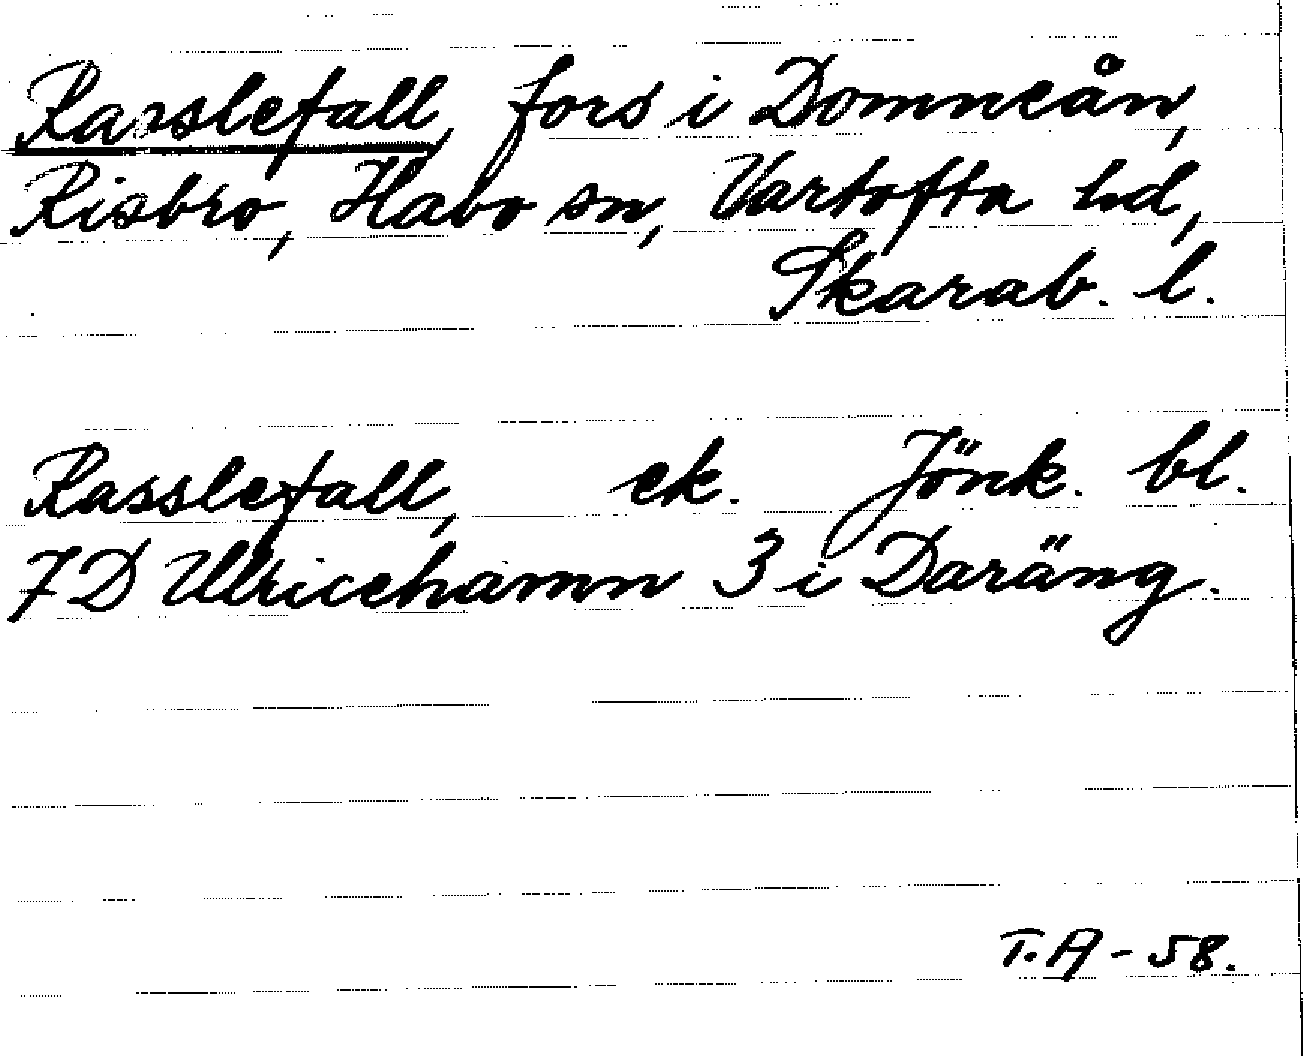 Rasslefall, fors i Domneån,
Risbro, Habo sn, Vartofta hd,
Skarab. l.
Rasslefall, ek. Jönk. bl.
7D Ulricehamn 3 i Daräng.
T.A - 58.